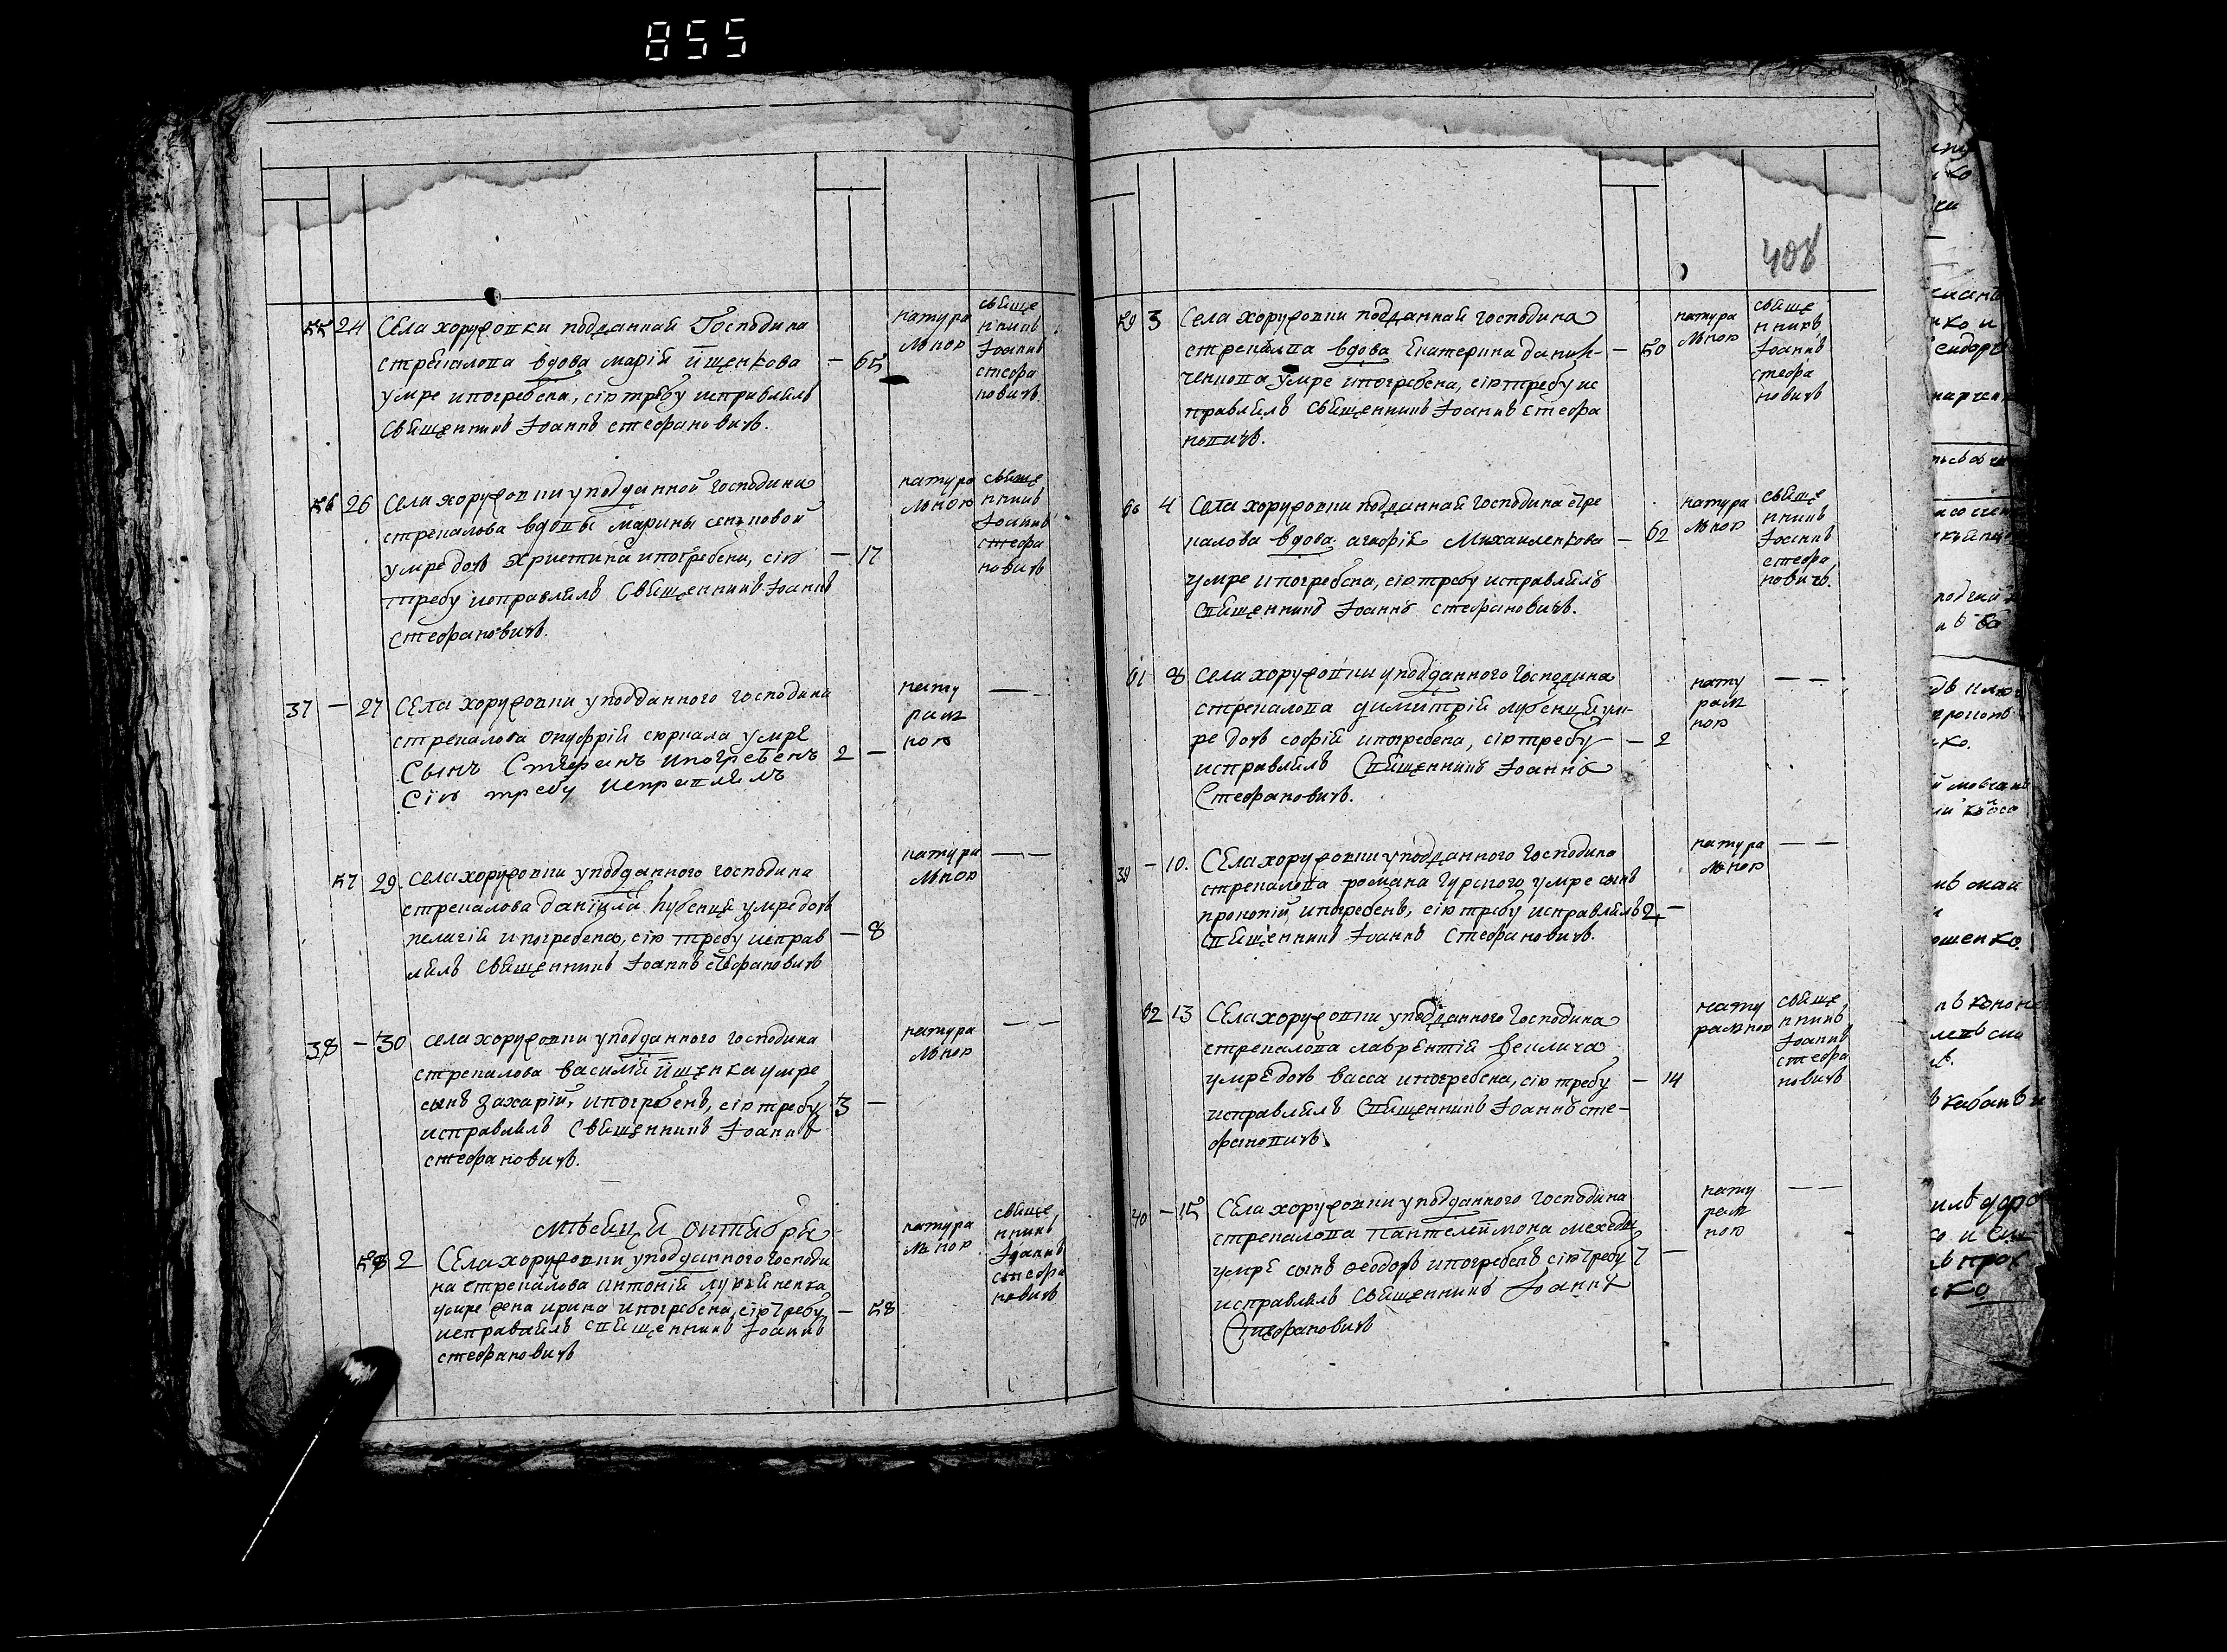 855
408
55 24 Села хоружовки подданная Господина
стрепалова вдова марія йщенкова
умре ипогребена, сію требу исправлялъ
Священникъ Іоаннъ стефановичъ.
— 65
натура
лною
свяще
нникъ
Іоаннъ
стефа
новичъ.
56 26 Села хоружовки уподданной господина
стрепалова вдовы марины
умре дочъ христина ипогребена, сію
требу исправлялъ Священникъ Іоаннъ
Стефановичъ.
— 17
натура
лною
свяще
нникъ
Іоаннъ
стефа
новичъ
37 — 27 Села хоружовки уподданного господина
стрепалова онуфрій сюркала умре
Сынъ Стефанъ ипогребенъ
Сію требу исправлялъ
2 —
нату
рал
ною
— —
57 29. села хоружовки уподданного господина
стрепалова даніила умре дочъ
пелагія ипогребена, сію требу исправ
лялъ Священникъ Іоаннъ Стефановичъ
— 8
натура
лною
— —
38 — 30 села хоружовки уподданного господина
стрепалова василій йщенка умре
сынъ захарій, ипогребенъ, сію требу
исправлялъ Священникъ Іоаннъ
стефановичъ.
3 —
натура
лною
— —
мѣсяця октября
58 2 Села хоружовки уподданного господи
на стрепалова антоній
умре жена ирина ипогребена, сію требу
исправлялъ священникъ Іоаннъ
стефановичъ
— 58
натура
лною
свяще
нникъ
Іоаннъ
стефа
новичъ
59 3 Села хоружовки подданная господина
стрепалова вдова Екатерина данил-
ченкова умре ипогребена, сію требу ис
правлялъ Священникъ Іоаннъ стефа
новичъ.
— 50
натура
лною
свяще
нникъ
Іоаннъ
стефа
новичъ
60 4 Села хоружовки подданная господина стре
палова вдова агафія Михаиленкова
умре ипогребена, сію требу исправлялъ
Священникъ Іоаннъ стефановичъ.
— 62
натура
лною
свяще
нникъ
Іоаннъ
стефа
новичъ.
61 8 села хоружовки уподданного господина
стрепалова димитрій лубенця ум-
ре дочъ софія ипогребена, сію требу
исправлялъ Священникъ Іоаннъ
Стефановичъ.
— 2
нату
рал
ною
— —
39 — 10. Села хоружовки уподданного господина
стрепалова романа гурского умре сынъ
прокопій ипогребенъ, сію требу исправлялъ
Священникъ Іоаннъ Стефановичъ.
2 —
натура
лною
— —
62 13 Села хоружовки уподданного господина
стрепалова лаврентій величка
умре дочъ васса ипогребена, сію требу
исправлялъ Священникъ Іоаннъ сте-
фановичъ.
— 14
нату
ралною
свяще
нникъ
Іоаннъ
стефа
новичъ
40 — 15 Села хоружовки уподданного господина
стрепалова Пантелеймона
умре сынъ феодоръ ипогребенъ сію требу
исправлялъ Священникъ Іоаннъ
Стефановичъ
7 —
нату
рал
ною
— —